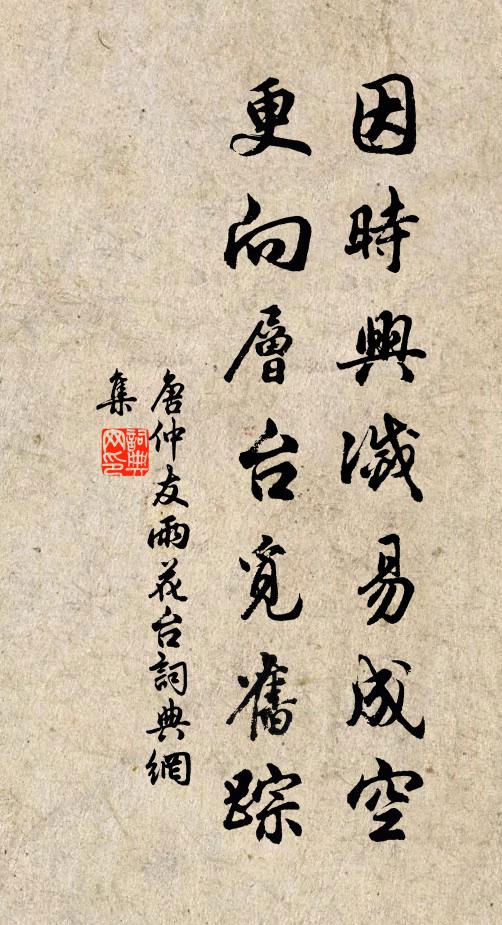 因時興滅易成空
更向層台覓舊踪
唐仲友雨花台詞典網
集
詞典
网印